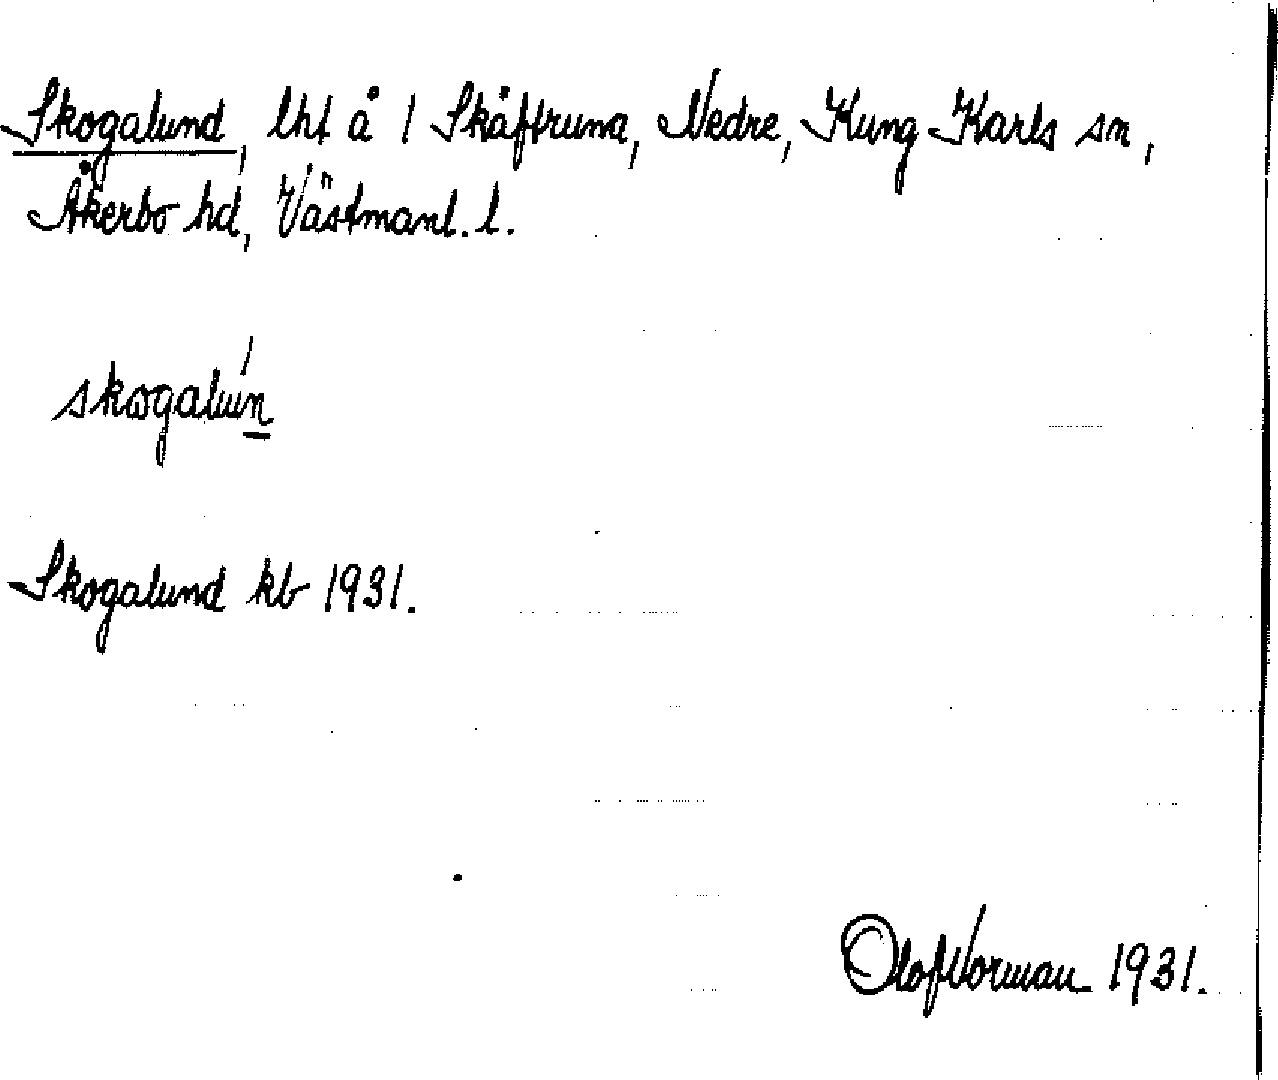 Skogalund, lht å 1 Skåftruna, Nedre, Kung Karls sn,
Åkerbo hd, Västmanl. l.
skogalún
Skogalund kb 1931.
Olof Norman 1931.